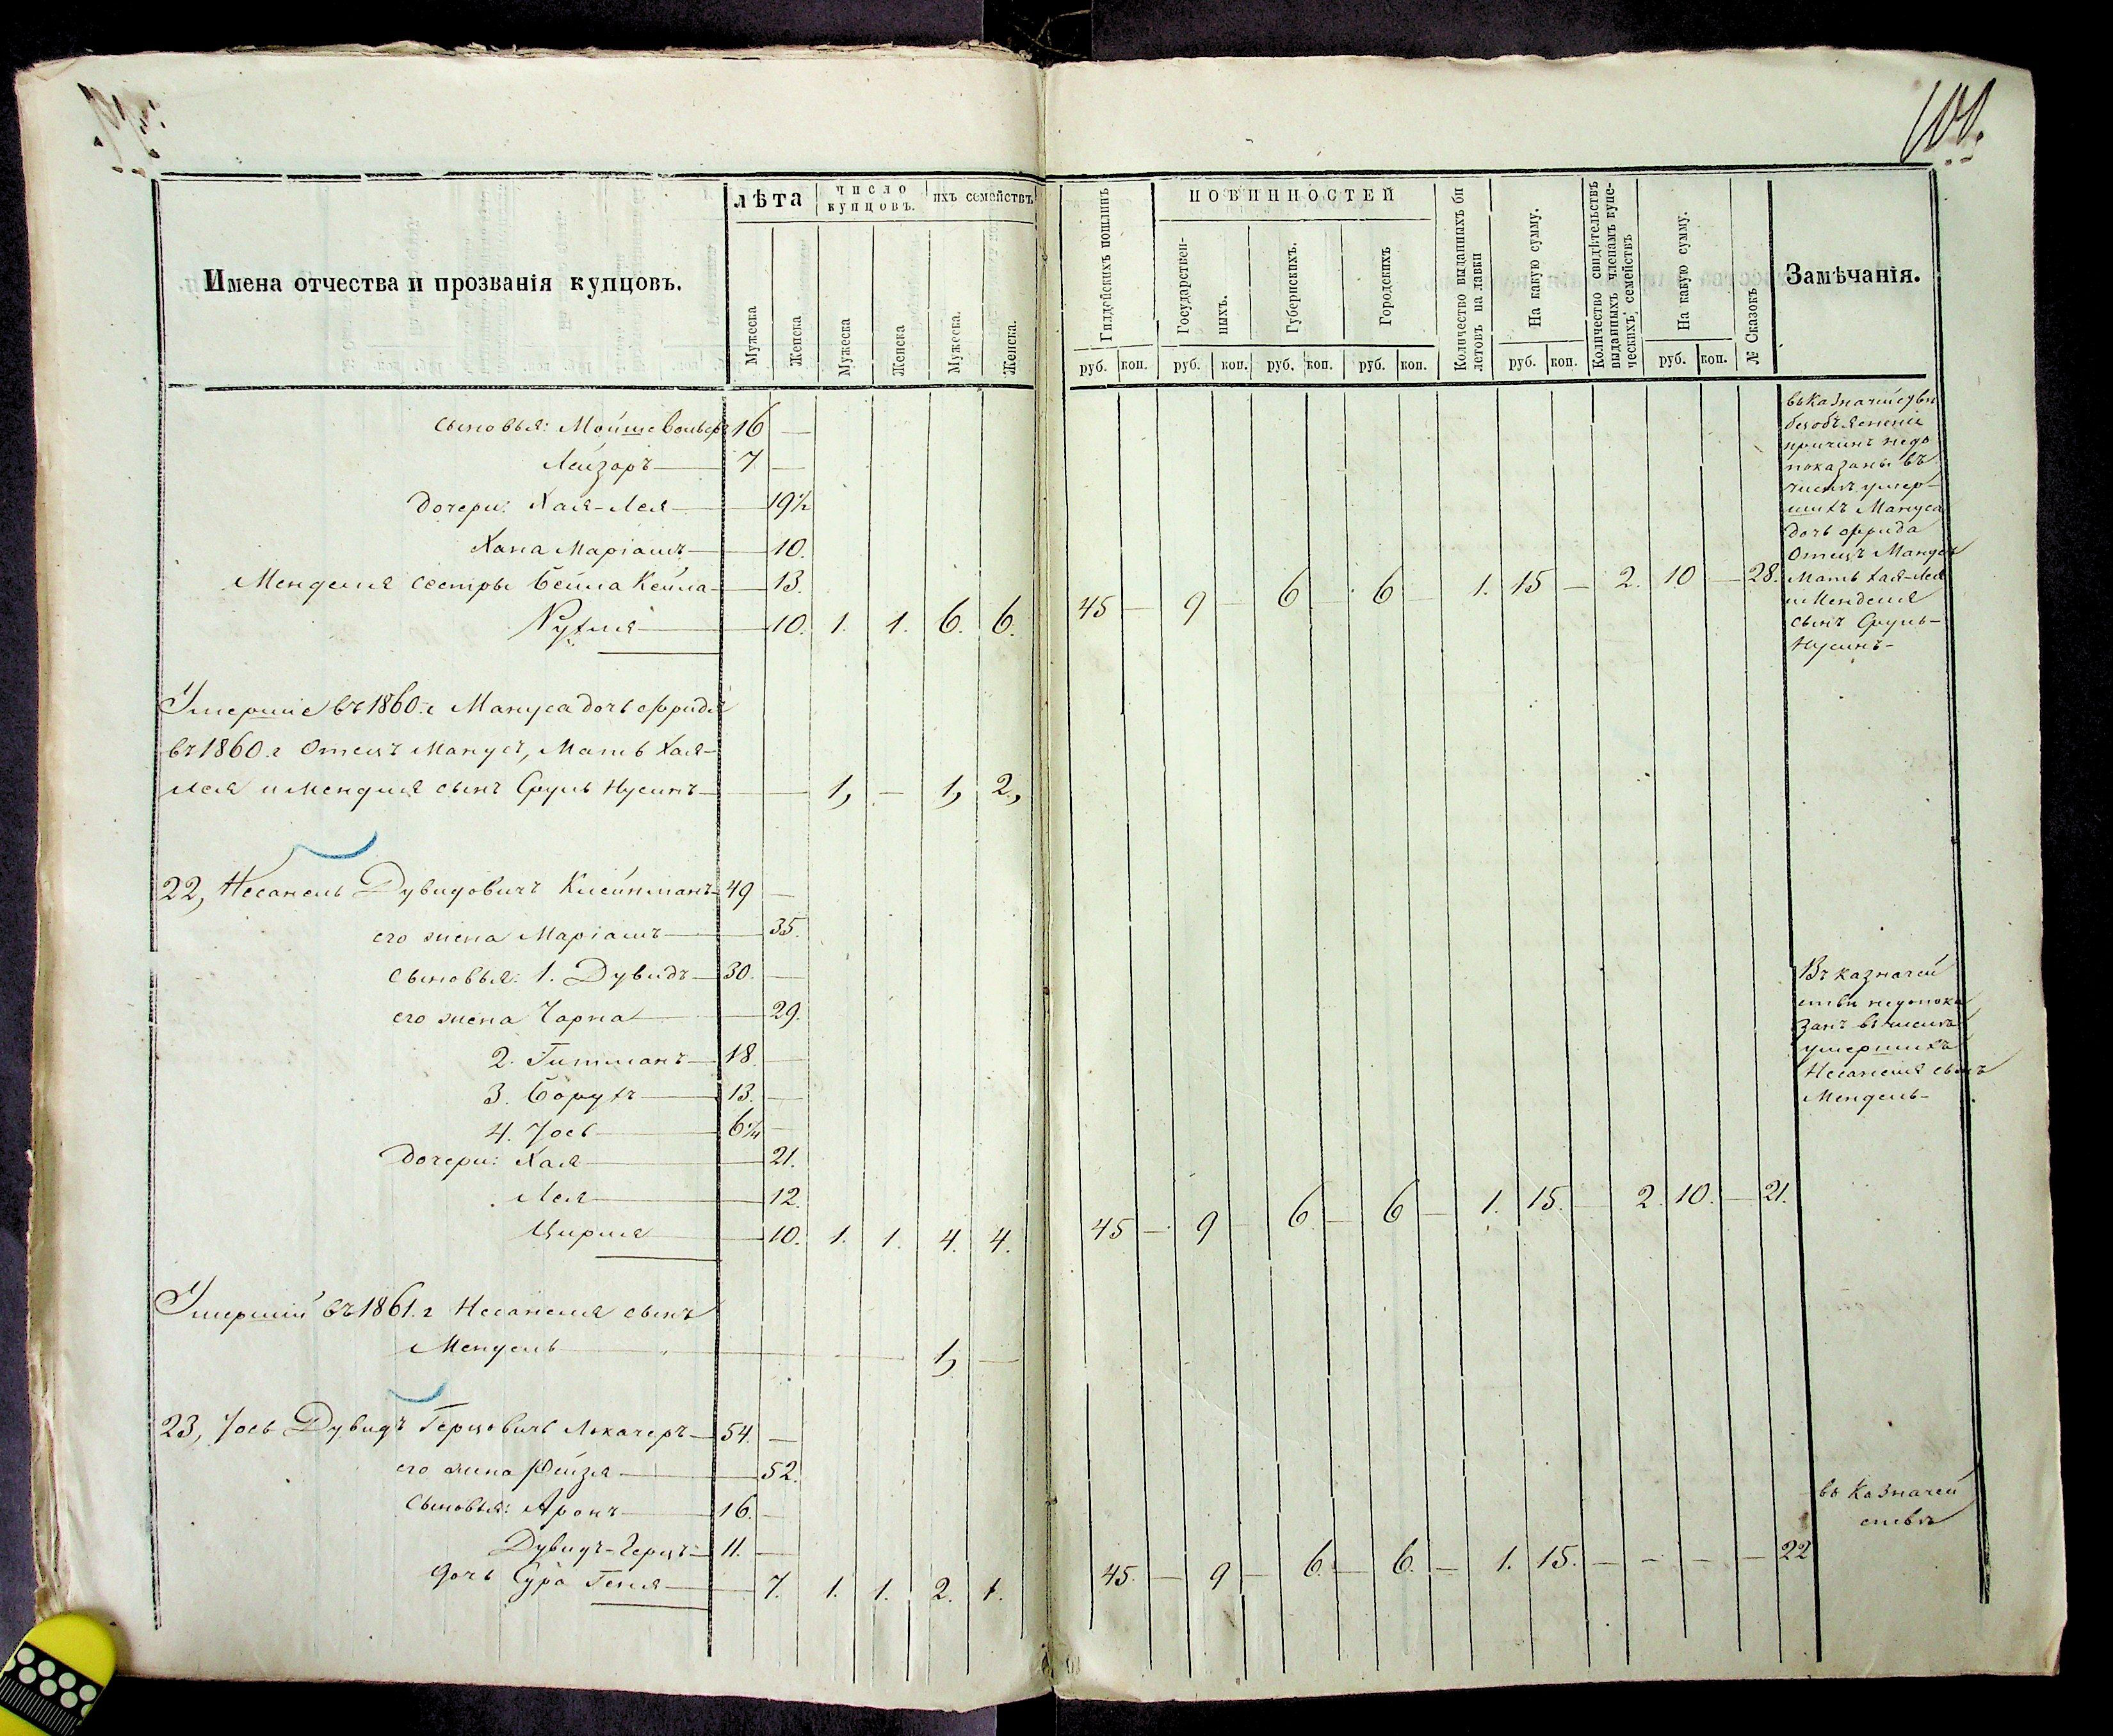 101.
Имена отчества и прозванія купцовъ.
лѣта
число купцовъ.
ихъ семействъ
Мужеска
Женска
Мужеска
Женска
Мужеска.
Женска.
Гилдейскихъ пошлинъ
ПОВИННОСТЕЙ
Государствен-
ныхъ.
Губернскихъ.
Городскихъ
Количество выданныхъ би
летовъ на лавки
На какую сумму.
Количество свидѣтельствъ
выданныхъ членамъ купе-
ческихъ, семействъ
На какую сумму.
№ Сказокъ
Замѣчанія.
руб. коп. руб. коп. руб. коп. руб. коп. руб. коп. руб. коп.
сыновья: Мойше 16 —
Лейзоръ — 7 —
дочери: Хая-Лея — 19½
Хана Маріамъ — 10.
Менделя сестры Бейла Кейла — 13.
Рухля — 10. 1. 1. 6. 6. 45 — 9 — 6 — 6 — 1. 15 — 2. 10 — 28.
въ Казначействѣ
безъ объясненіе
причинъ недо
показаны въ
числѣ умер-
шихъ Мануса
дочь Фрида
Отецъ Манусъ
Мать Хая-Лея
и Менделя
сынъ Сруль-
Нусинъ-
Умершіе въ 1860 г. Мануса дочь Фрида
въ 1860 г Отецъ Манусъ, Мать Хая-
Лея и Менделя сынъ Сруль Нусинъ — 1, — 1, 2,
22, Несанель Дувидовичъ Клейнманъ — 49 —
его жена Маріамъ — 35.
сыновья: 1. Дувидъ — 30. —
его жена Чарна — 29.
2. Гитманъ — 18 —
3. Борухъ — 13. —
4. Іось — 6¼ —
дочери: Хая — 21.
Лея — 12.
Цирля — 10. 1. 1. 4. 4. 45 — 9 — 6 — 6 — 1. 15. — 2. 10. — 21.
Въ казначей
ствѣ недопока
занъ въ числѣ
умершихъ
Несанеля сынъ
Мендель-
Умершій въ 1861. г Несанеля сынъ
Мендель — 1, —
23, Іось Дувидъ Герцовичъ Локачеръ — 54. —
его жена Рейзя — 52.
сыновья: Аронъ — 16. —
Дувидъ-Герцъ — 11. —
дочь Сура Геня — 7. 1. 1. 2. 1. 45. — 9 — 6. — 6. — 1. 15. — — — — 22
въ Казначей
ствѣ